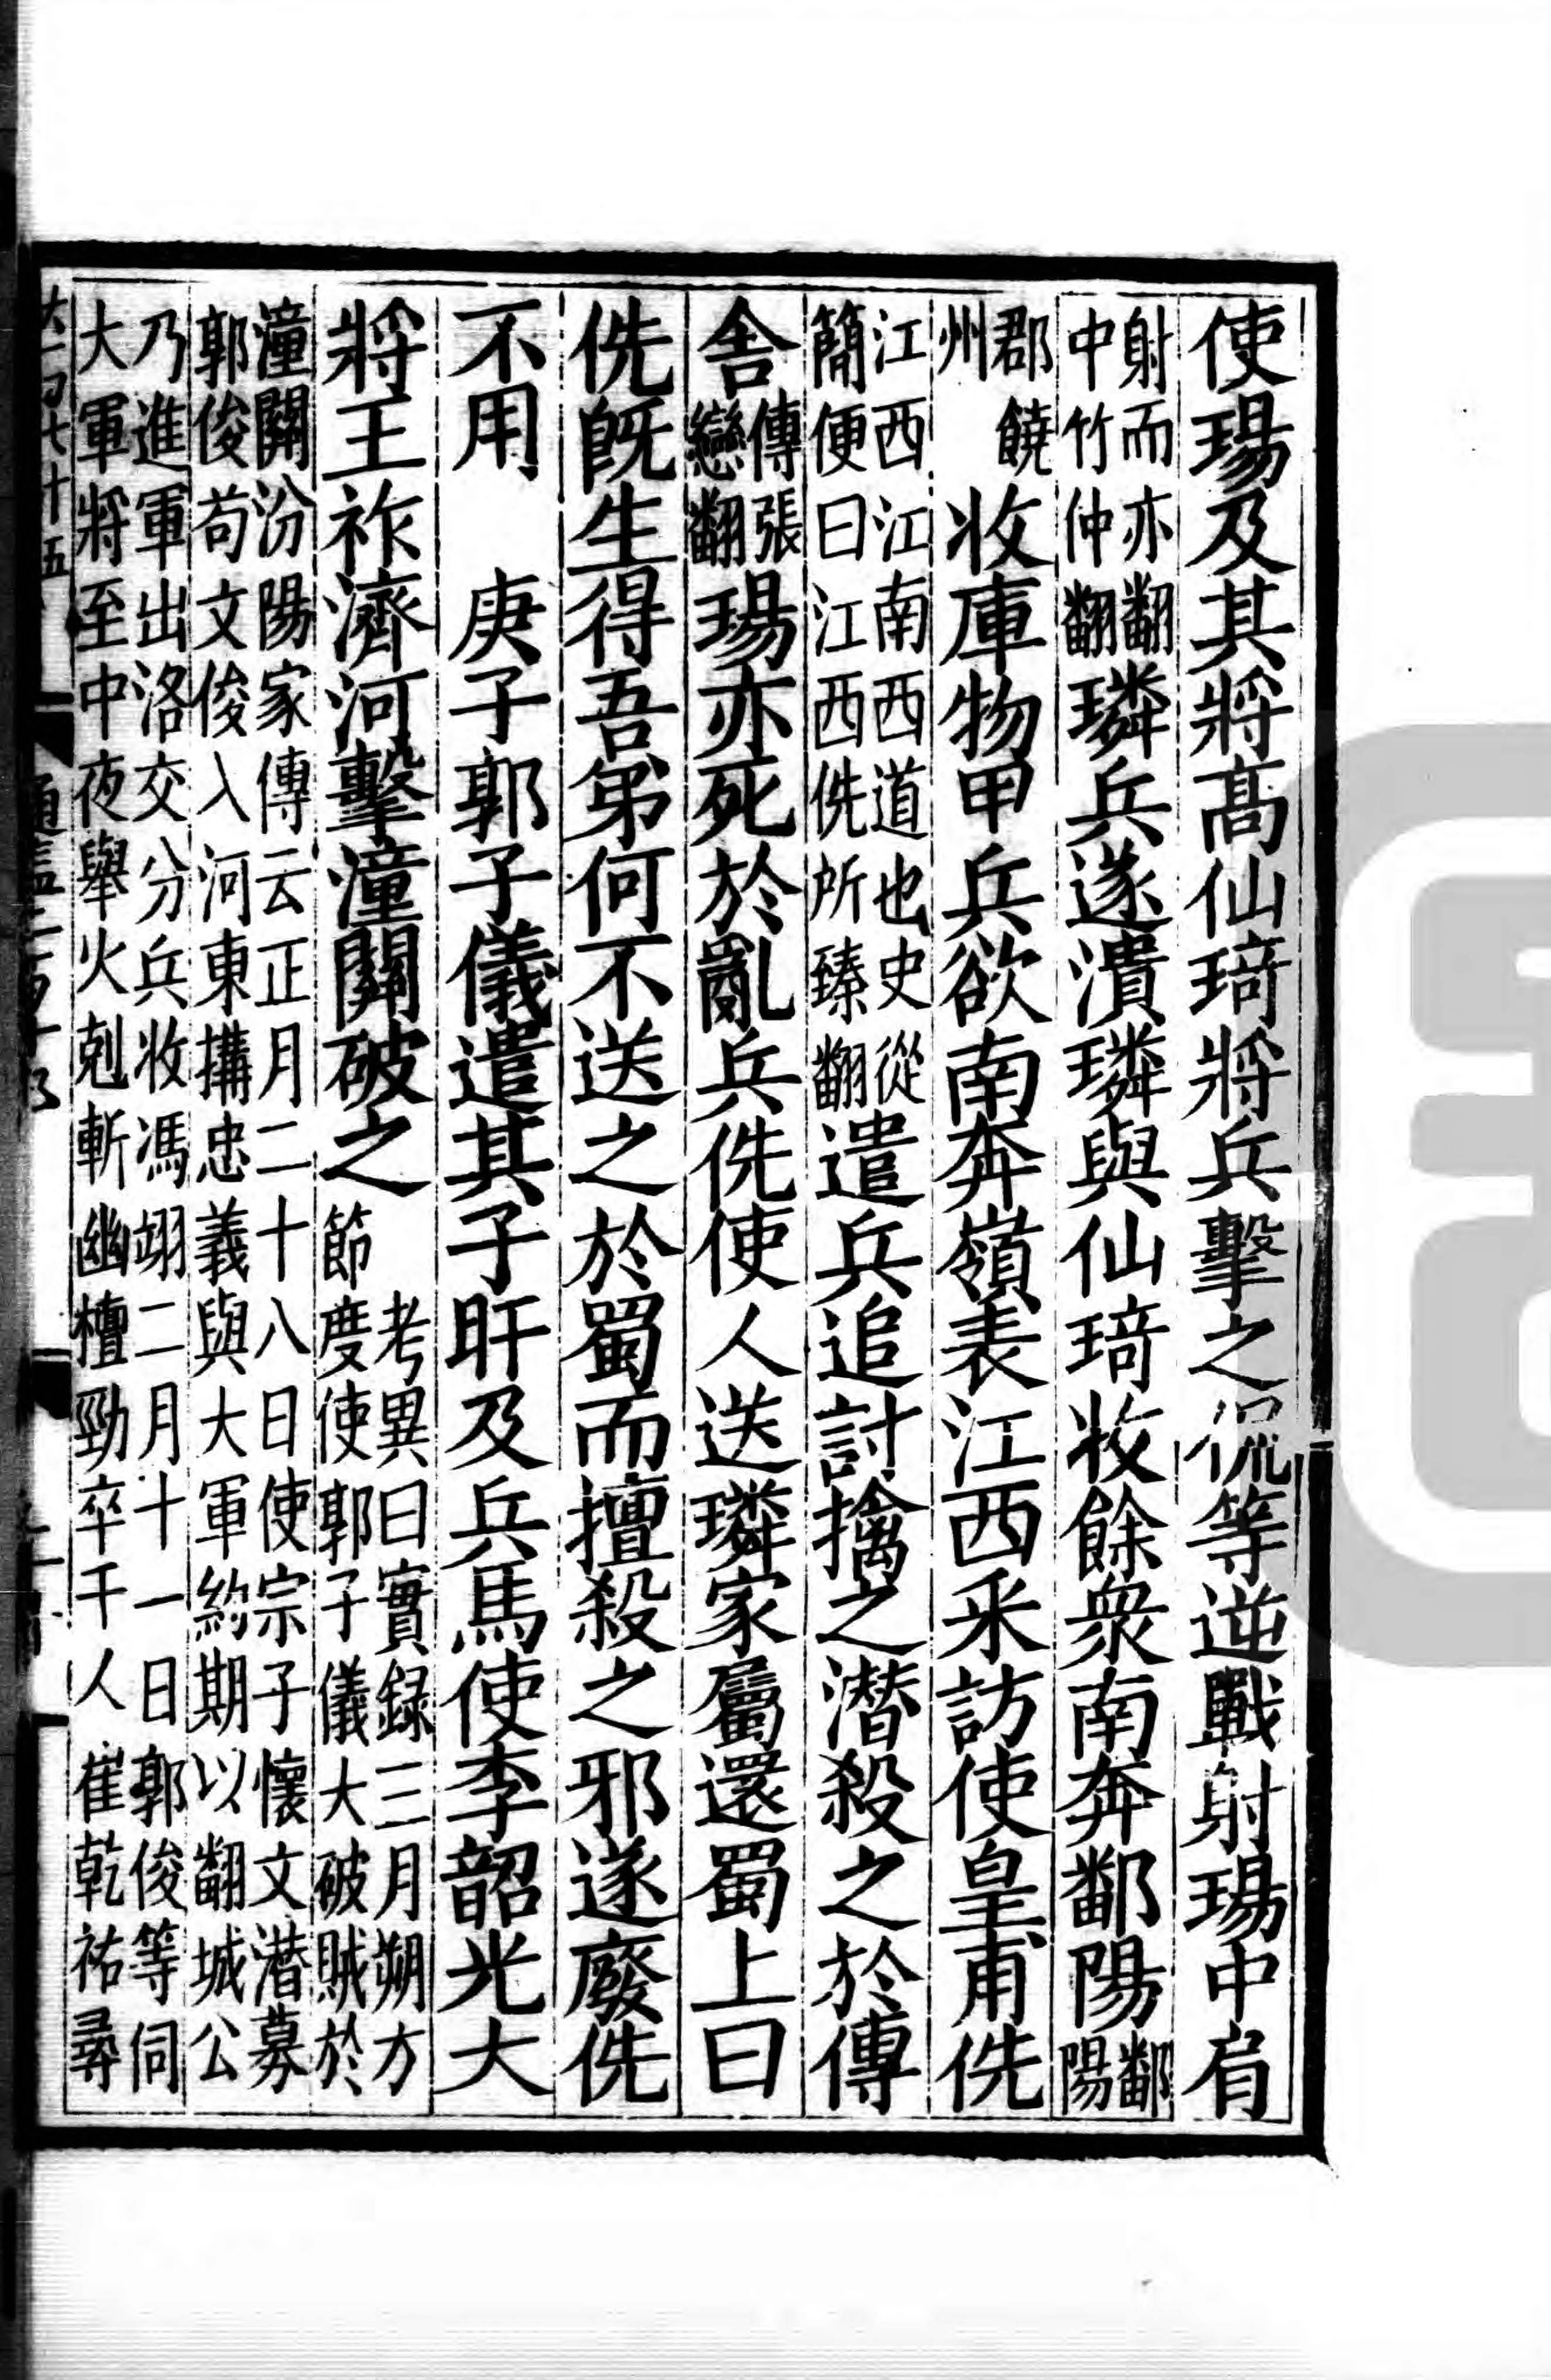 使瑒及其將髙仙琦將兵擊之侃等逆戰射瑒中肩
射而亦翻
中竹仲翻
璘兵遂潰璘與仙琦收餘衆南奔鄱陽
鄱
陽
郡饒
州
收庫物甲兵欲南奔嶺表江西采訪使皇甫侁
江西江南西道也史從
簡便曰江西侁所臻翻
遣兵追討擒之潛殺之於傳
舍
傳張
戀翻
瑒亦死於亂兵侁使人送璘家屬還蜀上曰
侁既生得吾弟何不送之於蜀而擅殺之邪遂廢侁
不用 庚子郭子儀遣其子旰及兵馬使李韶光大
將王祚濟河擊潼關破之
考異曰實録三月朔方
節度使郭子儀大破賊於
潼關汾陽家傳云正月二十八日使宗子懷文潛募
郭俊苟文俊入河東搆忠義與大軍約期以翻城公
乃進軍出洛交分兵收馮翊二月十一日郭俊等伺
大軍將至中夜舉火剋斬幽檀勁卒千人崔乾祐尋